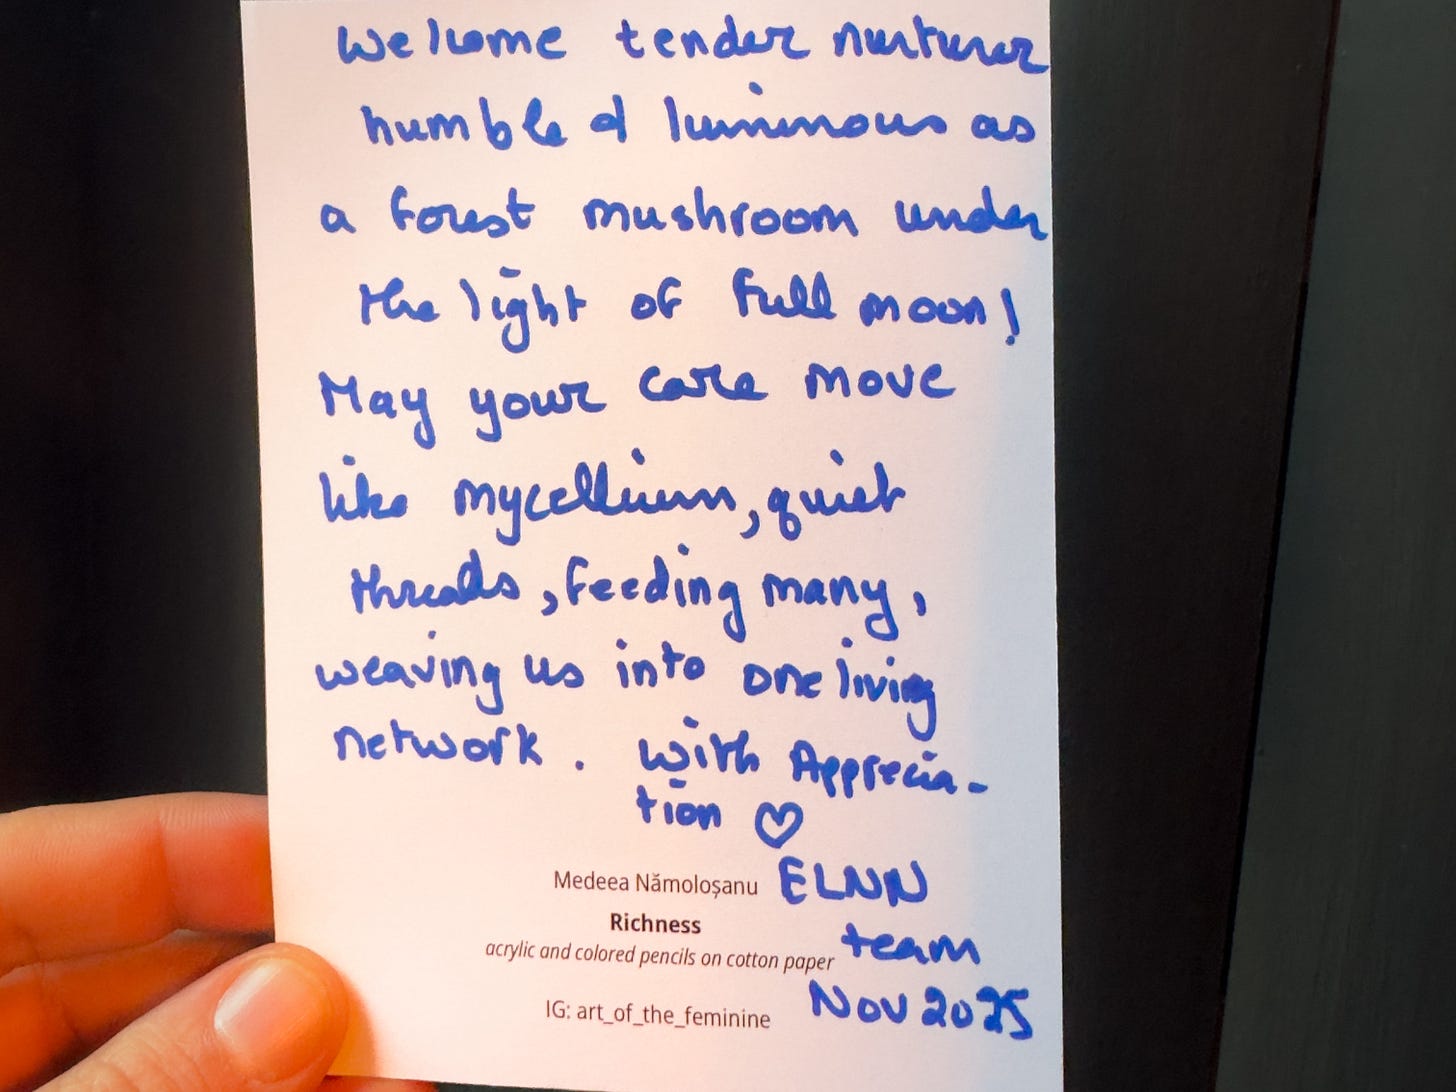 Welcome tender nurturer
humble & luminous as
a forest mushroom under
the light of full moon!
May your care move
like mycellium, quiet
threads, feeding many,
weaving us into one living
network. With Apprecia-
tion ♡
Medeea Nămoloșanu ELNN
Richness
team
acrylic and colored pencils on cotton paper
IG: art_of_the_feminine Nov 2025